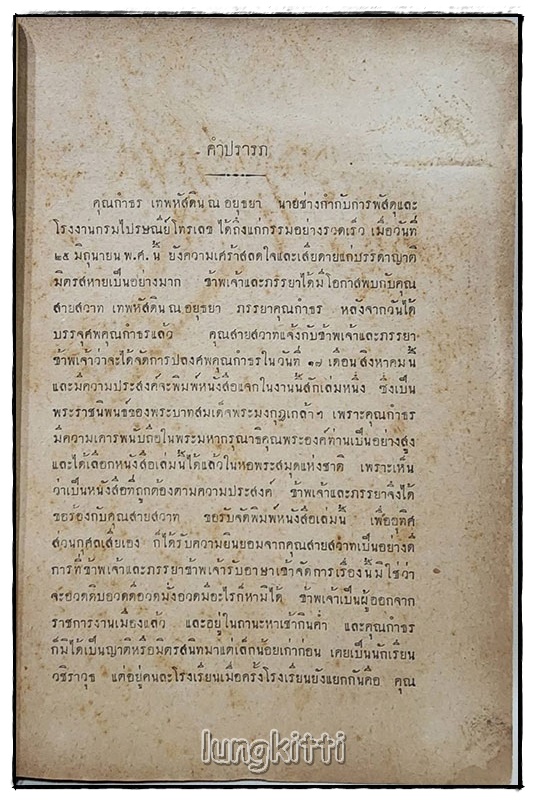 คำปรารภ
คุณกำธร เทพหัสดิน ณ อยุธยา นายช่างกำกับการพัสดุและ
โรงงานกรมไปรษณีย์โทรเลข ได้ถึงแก่กรรมอย่างรวดเร็ว เมื่อวันที่
๒๕ มิถุนายน พ.ศ. นี้ ยังความเศร้าสลดใจและเสียดายแก่บรรดาญาติ
มิตรสหายเป็นอย่างมาก ข้าพเจ้าและภรรยาได้มีโอกาสพบกับคุณ
สายสวาท เทพหัสดิน ณ อยุธยา ภรรยาคุณกำธร หลังจากวันได้
บรรจุศพคุณกำธรแล้ว คุณสายสวาทแจ้งกับข้าพเจ้าและภรรยา
ข้าพเจ้าว่าจะได้จัดการปลงศพคุณกำธรในวันที่ ๑๗ เดือนสิงหาคมนี้
และมีความประสงค์จะพิมพ์หนังสือแจกในงานนี้สักเล่มหนึ่ง ซึ่งเป็น
พระราชนิพนธ์ของพระบาทสมเด็จพระมงกุฎเกล้าฯ เพราะคุณกำธร
มีความเคารพนับถือในพระมหากรุณาธิคุณพระองค์ท่านเป็นอย่างสูง
และได้เลือกหนังสือเล่มนี้ได้แล้วในหอพระสมุดแห่งชาติ เพราะเห็น
ว่าเป็นหนังสือที่ถูกต้องตามความประสงค์ ข้าพเจ้าและภรรยาจึงได้
ขอร้องกับคุณสายสวาท ขอรับจัดพิมพ์หนังสือเล่มนี้ เพื่ออุทิศ
ส่วนกุศลเสียเอง ก็ได้รับความยินยอมจากคุณสายสวาทเป็นอย่างดี
การที่ข้าพเจ้าและภรรยาข้าพเจ้ารับอาษาเข้าจัดการเรื่องนี้ มิใช่ว่า
จะอวดดิบอวดดีอวดมั่งอวดมีอะไรก็หามิได้ ข้าพเจ้าเป็นผู้ออกจาก
ราชการงานเมืองแล้ว และอยู่ในถานะหาเช้ากินค่ำ และคุณกำธร
ก็มิได้เป็นญาติหรือมิตรสนิทมาแต่เล็กน้อยเก่าก่อน เคยเป็นนักเรียน
วชิราวุธ แต่อยู่คนละโรงเรียนเมื่อครั้งโรงเรียนยังแยกกันคือ คุณ
lungkitti